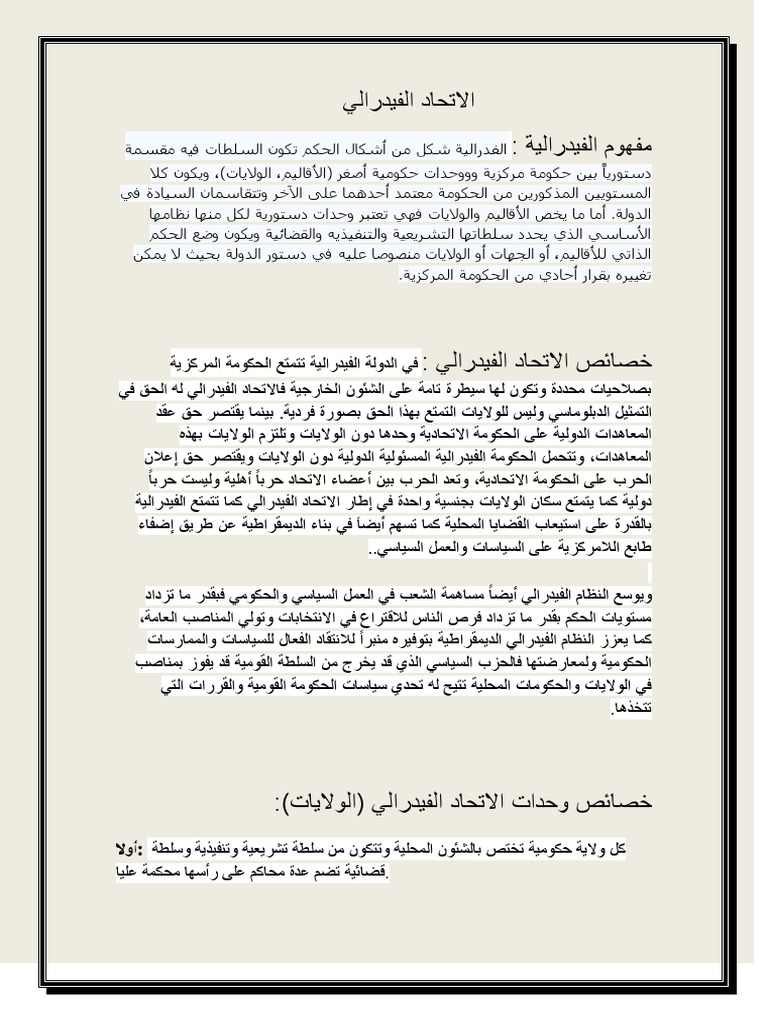 الاتحاد الفيدرالي
مفهوم الفيدرالية : الفدرالية شكل من أشكال الحكم تكون السلطات فيه مقسمة
دستورياً بين حكومة مركزية وووحدات حكومية أصغر (الأقاليم، الولايات)، ويكون كلا
المستويين المذكورين من الحكومة معتمد أحدهما على الآخر وتتقاسمان السيادة في
الدولة. أما ما يخص الأقاليم والولايات فهي تعتبر وحدات دستورية لكل منها نظامها
الأساسي الذي يحدد سلطاتها التشريعية والتنفيذيه والقضائية ويكون وضع الحكم
الذاتي للأقاليم، أو الجهات أو الولايات منصوصا عليه في دستور الدولة بحيث لا يمكن
تغييره بقرار أحادي من الحكومة المركزية.
خصائص الاتحاد الفيدرالي : في الدولة الفيدرالية تتمتع الحكومة المركزية
بصلاحيات محددة وتكون لها سيطرة تامة على الشئون الخارجية فالاتحاد الفيدرالي له الحق في
التمثيل الدبلوماسي وليس للولايات التمتع بهذا الحق بصورة فردية. بينما يقتصر حق عقد
المعاهدات الدولية على الحكومة الاتحادية وحدها دون الولايات وتلتزم الولايات بهذه
المعاهدات، وتتحمل الحكومة الفيدرالية المسئولية الدولية دون الولايات ويقتصر حق إعلان
الحرب على الحكومة الاتحادية، وتعد الحرب بين أعضاء الاتحاد حرباً أهلية وليست حرباً
دولية كما يتمتع سكان الولايات بجنسية واحدة في إطار الاتحاد الفيدرالي كما تتمتع الفيدرالية
بالقدرة على استيعاب القضايا المحلية كما تسهم أيضاً في بناء الديمقراطية عن طريق إضفاء
طابع اللامركزية على السياسات والعمل السياسي..
ويوسع النظام الفيدرالي أيضاً مساهمة الشعب في العمل السياسي والحكومي فبقدر ما تزداد
مستويات الحكم بقدر ما تزداد فرص الناس للاقتراع في الانتخابات وتولي المناصب العامة،
كما يعزز النظام الفيدرالي الديمقراطية بتوفيره منبراً للانتقاد الفعال للسياسات والممارسات
الحكومية ولمعارضتها فالحزب السياسي الذي قد يخرج من السلطة القومية قد يفوز بمناصب
في الولايات والحكومات المحلية تتيح له تحدي سياسات الحكومة القومية والقررات التي
تتخذها.
خصائص وحدات الاتحاد الفيدرالي (الولايات):
كل ولاية حكومية تختص بالشئون المحلية وتتكون من سلطة تشريعية وتنفيذية وسلطة :أولا
قضائية تضم عدة محاكم على رأسها محكمة عليا.